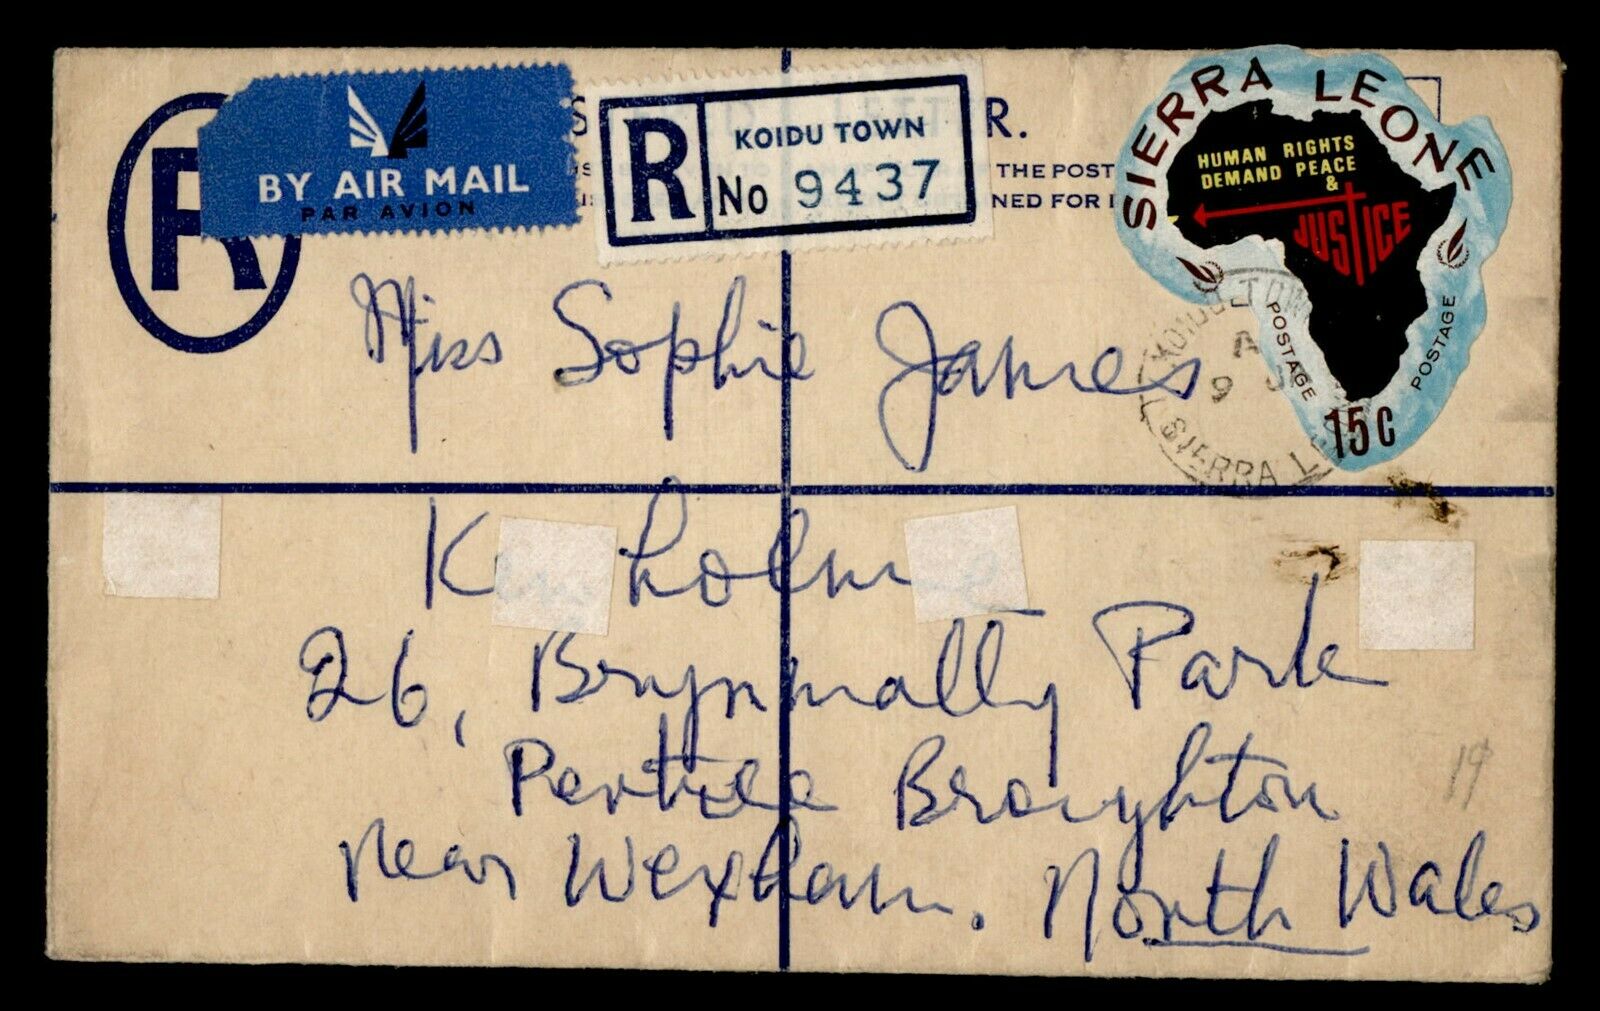 R
BY AIR MAIL
PAR AVION
R
KOIDU TOWN
No 9437
R.
THE POST
NED FOR
SIERRA LEONE
HUMAN RIGHTS
DEMAND PEACE
&
JUSTICE
POSTAGE
POSTAGE
15c
KOIDU TOWN
A
9
SIERRA
Miss Sophie James
holme
26, Brynmally Park
Pentice Broughton
Near Wexham. North Wales
19